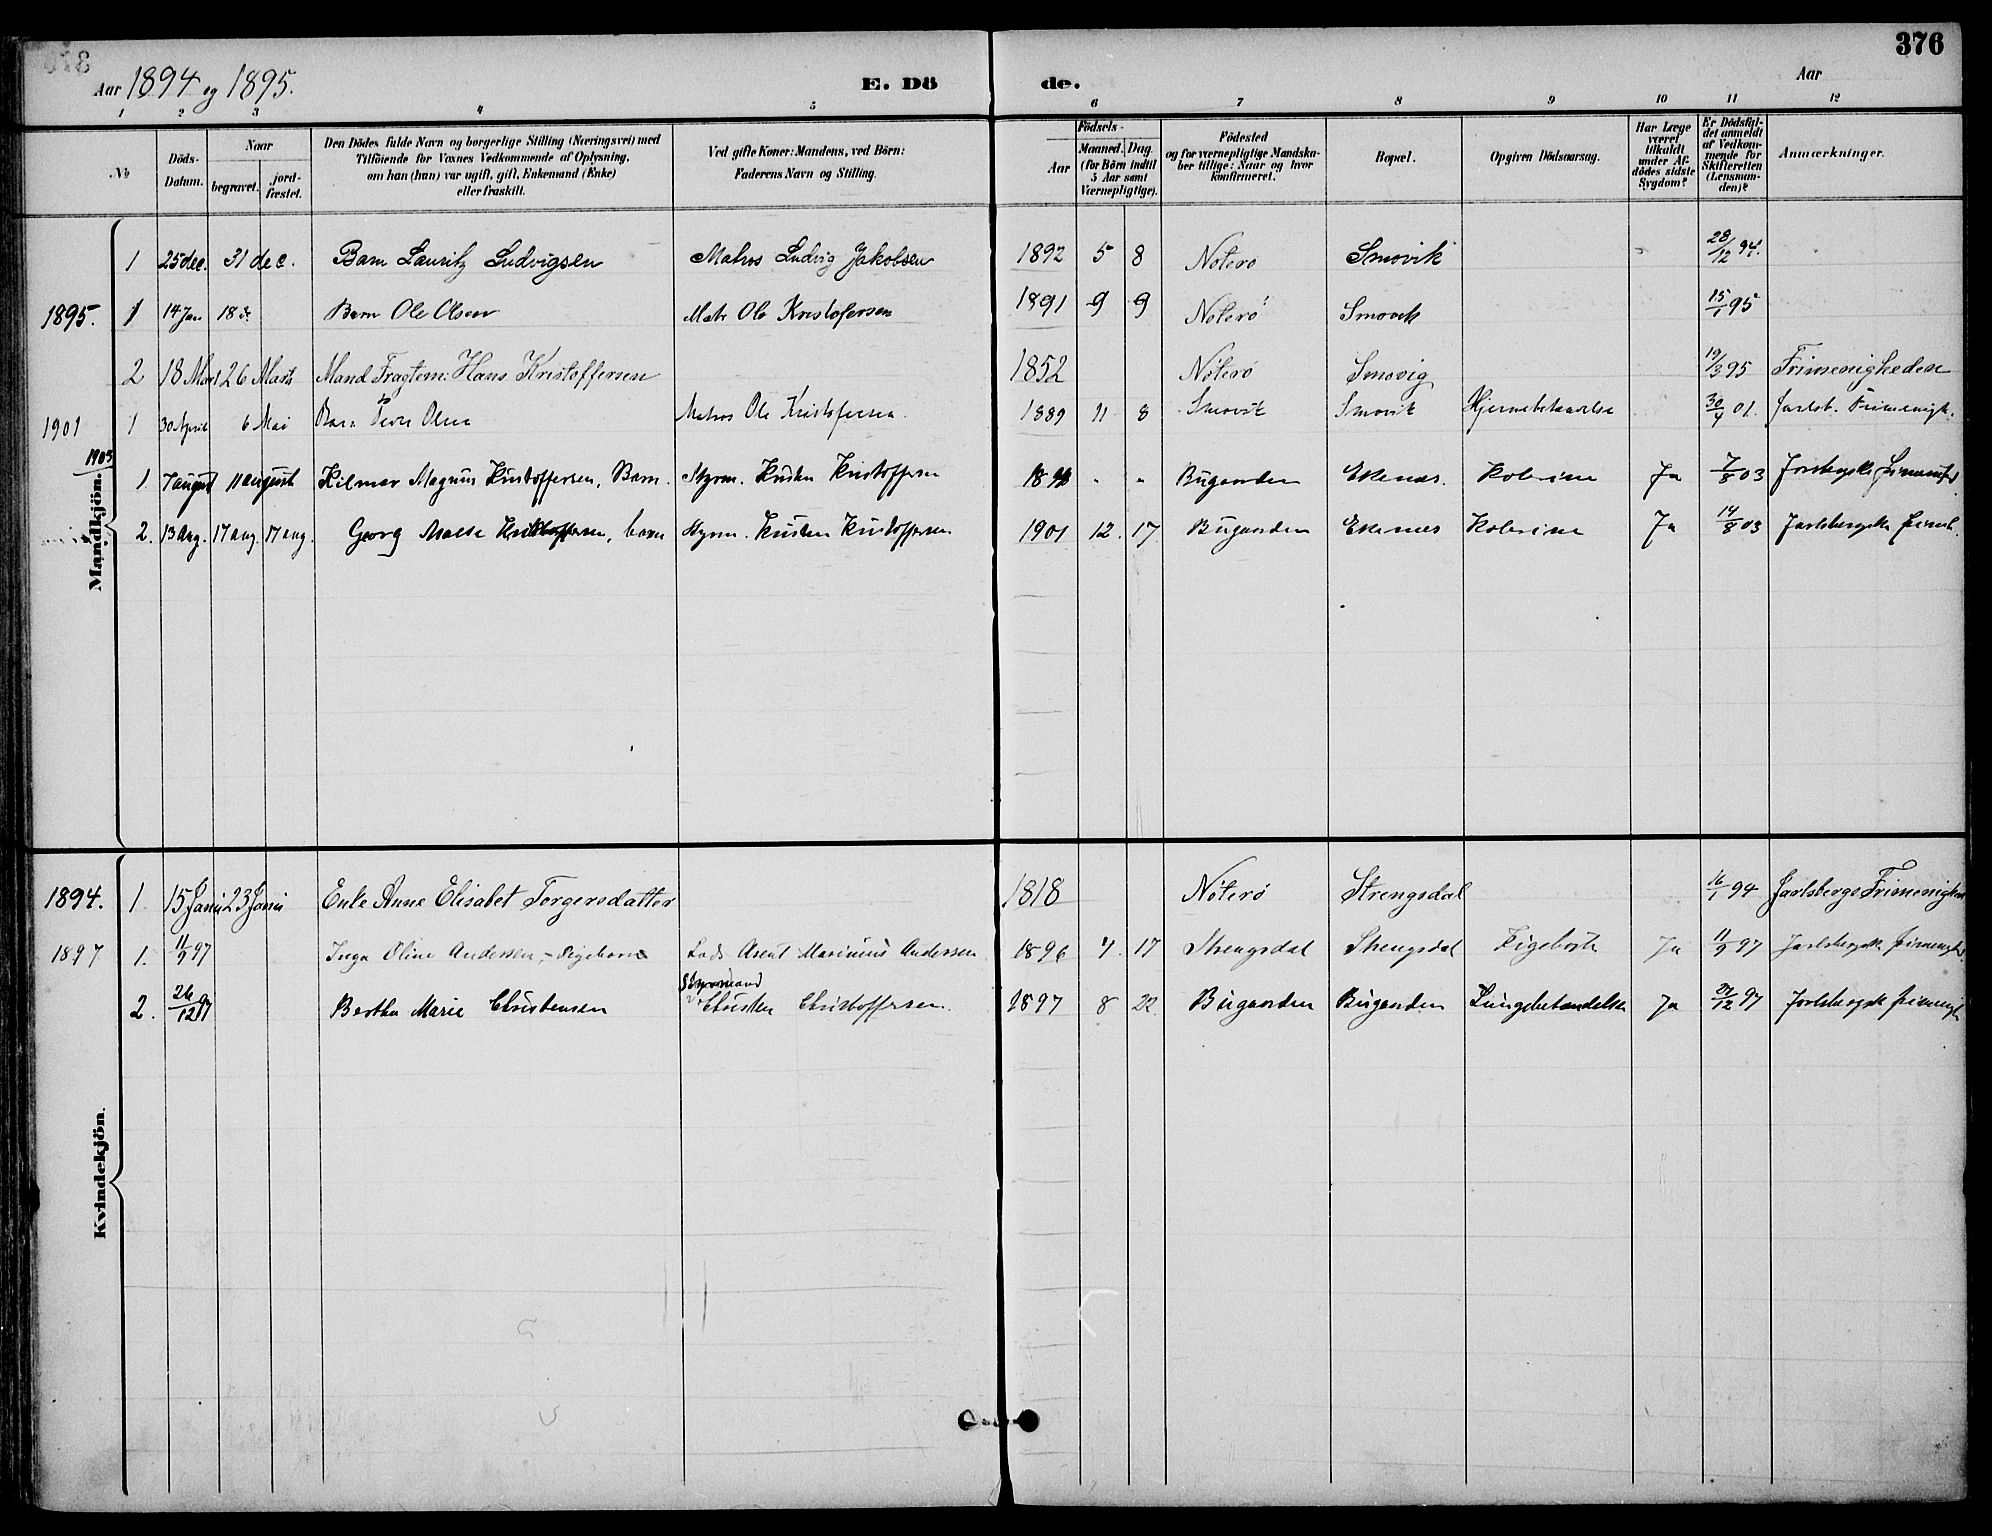 376
Aar 1894 og 1895.
E. Dö de.
Aar
1 2 3 4 5 6 7 8 9 10 11 12
No
Döds-Datum.
Naar
begravet.
jord-fæstet.
Den Dödes fulde Navn og borgerlige Stilling (Næringsvei) med
Tilföiende for Voxnes Vedkommende af Oplysning,
om han (hun) var ugift, gift, Enkemand (Enke)
eller fraskilt.
Ved gifte Koner: Mandens, ved Börn:
Faderens Navn og Stilling.
Födsels-
Aar
Maaned. Dag.
(for Börn indtil
5 Aar samt
Værnepligtige).
Födested
og for værnepligtige Mandska-
ber tillige: Naar og hvor
konfirmeret.
Bopæl.
Opgiven Dödsaarsag.
Har Læge
været
tilkaldt
under Af-
dödes sidste
Sygdom?
Er Dödsfal-
det anmeldt
af Vedkom-
mende for
Skifteretten
(Lensman-
den)?
Anmærkninger.
Mandkjön.
1 25 dec. 31 dec. Barn Lauritz Ludvigsen Matros Ludvig Jakobsen 1892 5 8 Noterø Smovik 28/12 94.
1895. 1 14 Jan 18 d. Barn Ole Olsen Matr Ole Kristofersen 1891 9 9 Noterø Smovik 15/1 95
2 18 Mart 26 Marts Mand Fragtem: Hans Kristoffersen 1852 Nöterö Smovig 19/3 95 Frimenigheden
1901 1 30 April 6 Mai Barn Olsen Matros Ole Kristofersen. 1889 11 8 Smovik Smovik Hjernebetændelse 30/4 01. Jarlsb. Frimenigh.
1903 1. 7 august 11 august Hilmar Magnus Kristoffersen, Barn. Styrm. Kristen Kristoffersen 18 " " Bugaarden Ekenes. Kolerine Ja 7/8 03
2. 13 aug. 17 aug. 17 aug. Georg Kristoffersen, barn Styrm. Kristen Kristoffersen 1901 12. 17 Bugaarden Ekenes Kolerine Ja 14/8 03 Jarlsbergske frimh.
Kvindekjön.
1894. 1. 15 Janu 23 Janu Enke Anne Elisabet Torgersdatter 1818 Nöterö Strengsdal 16/1 94 Jarlsbergs Frimenighed
1897 1. 11/9 97 Inga Oline Andersen, Pigebarn Lods Arent Marinius Andersen 1896 7. 17 Strengsdal Strengsdal Ja 11/9 97 Jarlsbergsk frimenighd.
2. 26/12 97 Bertha Marie Christensen Styrmand Christen Christoffersen. 1897 8 22. Bugaarden Bugaarden Lungebetændelse Ja 27/12 97 Jarlsbergsk frimenigh